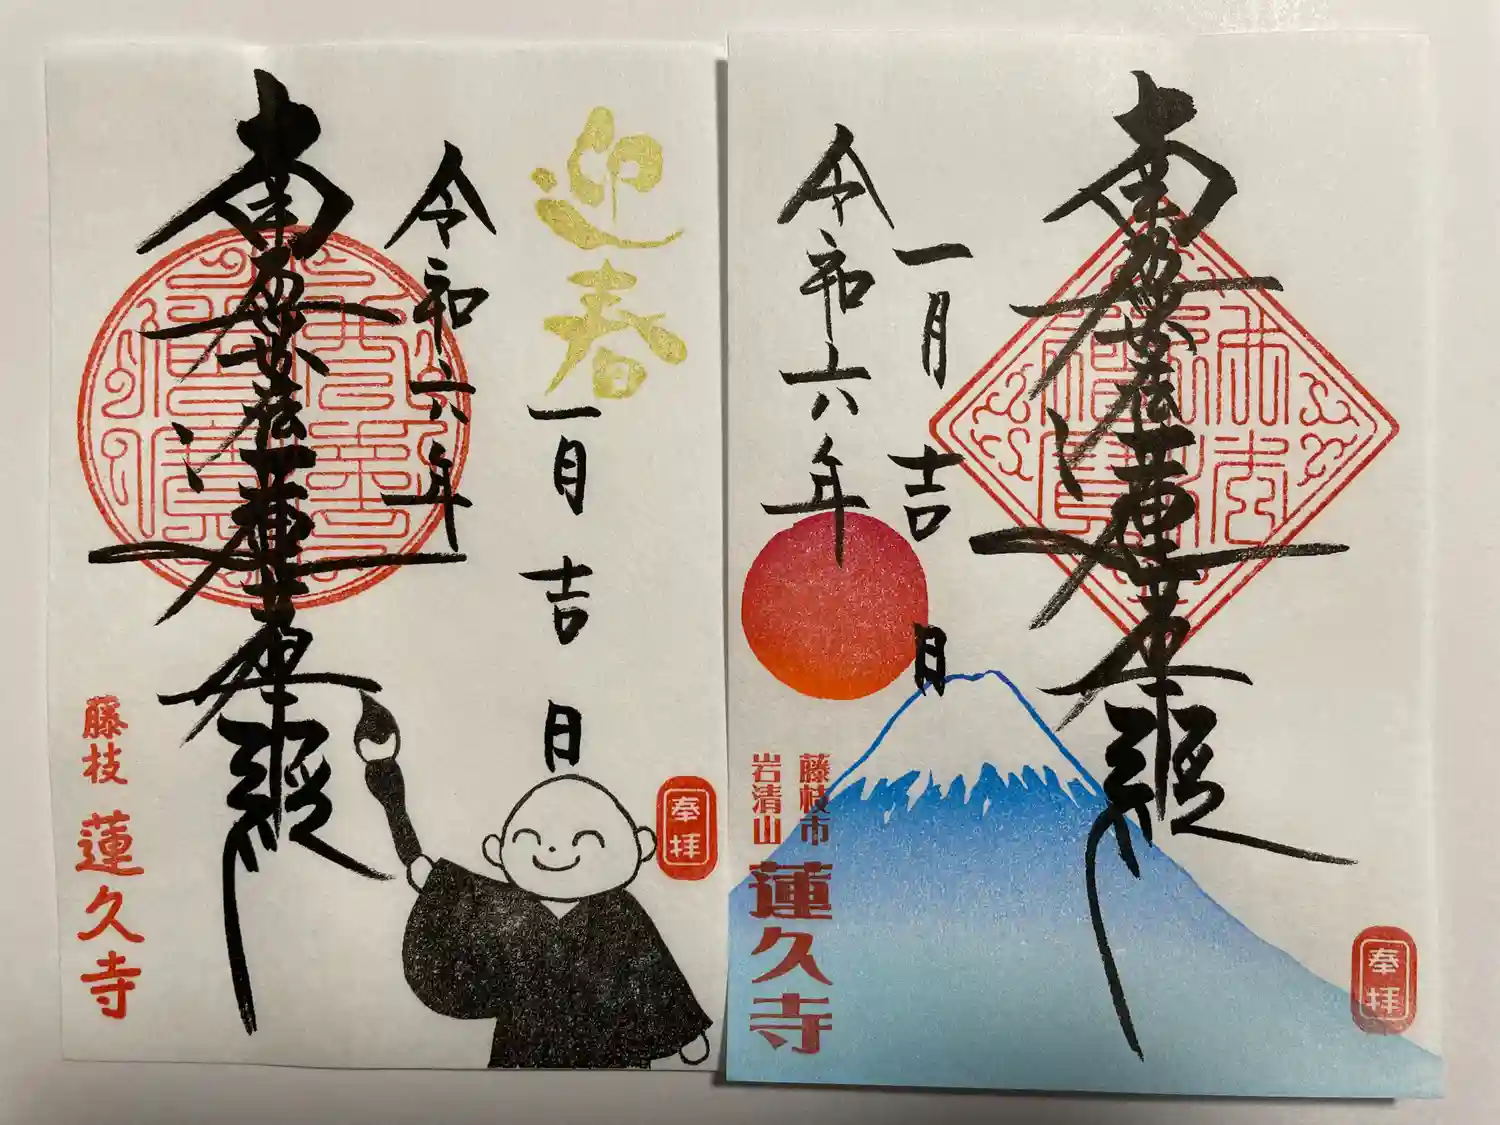 奉拝
迎春
一月吉日
令和六年
南無妙法蓮華経
藤枝
蓮久寺
奉拝
南無妙法蓮華経
一月吉日
令和六年
藤枝市
岩清山
蓮久寺